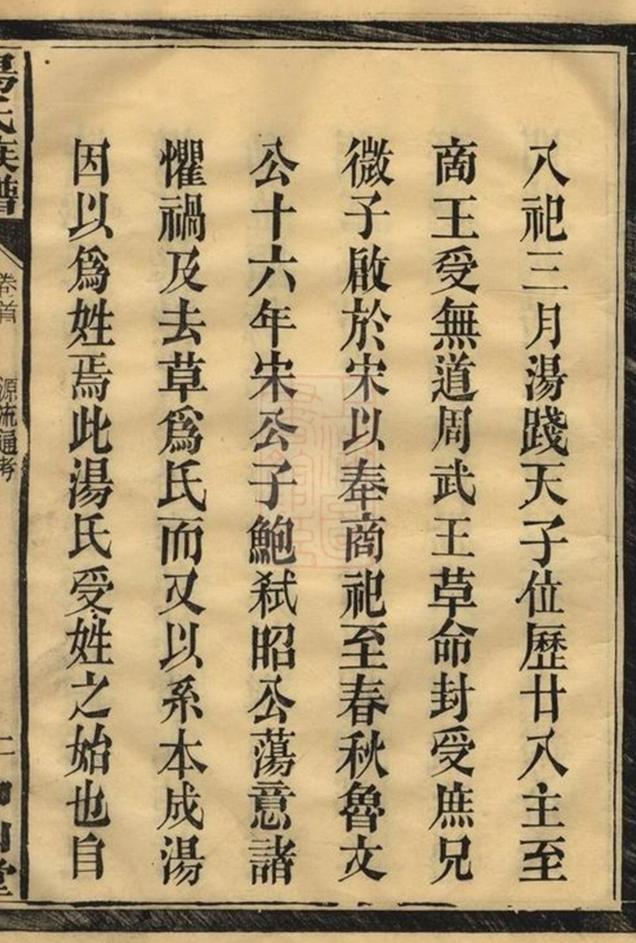 八祀三月湯踐天子位歷廿八主至
商王受無道周武王草命封受庶兄
微子啟於宋以奉商祀至春秋魯文
公十六年宋公子鮑弒昭公蕩意諸
懼禍及去草爲氏而又以系本成湯
因以爲姓焉此湯氏受姓之始也自
湯氏族譜
卷首
源流通考
二
堂